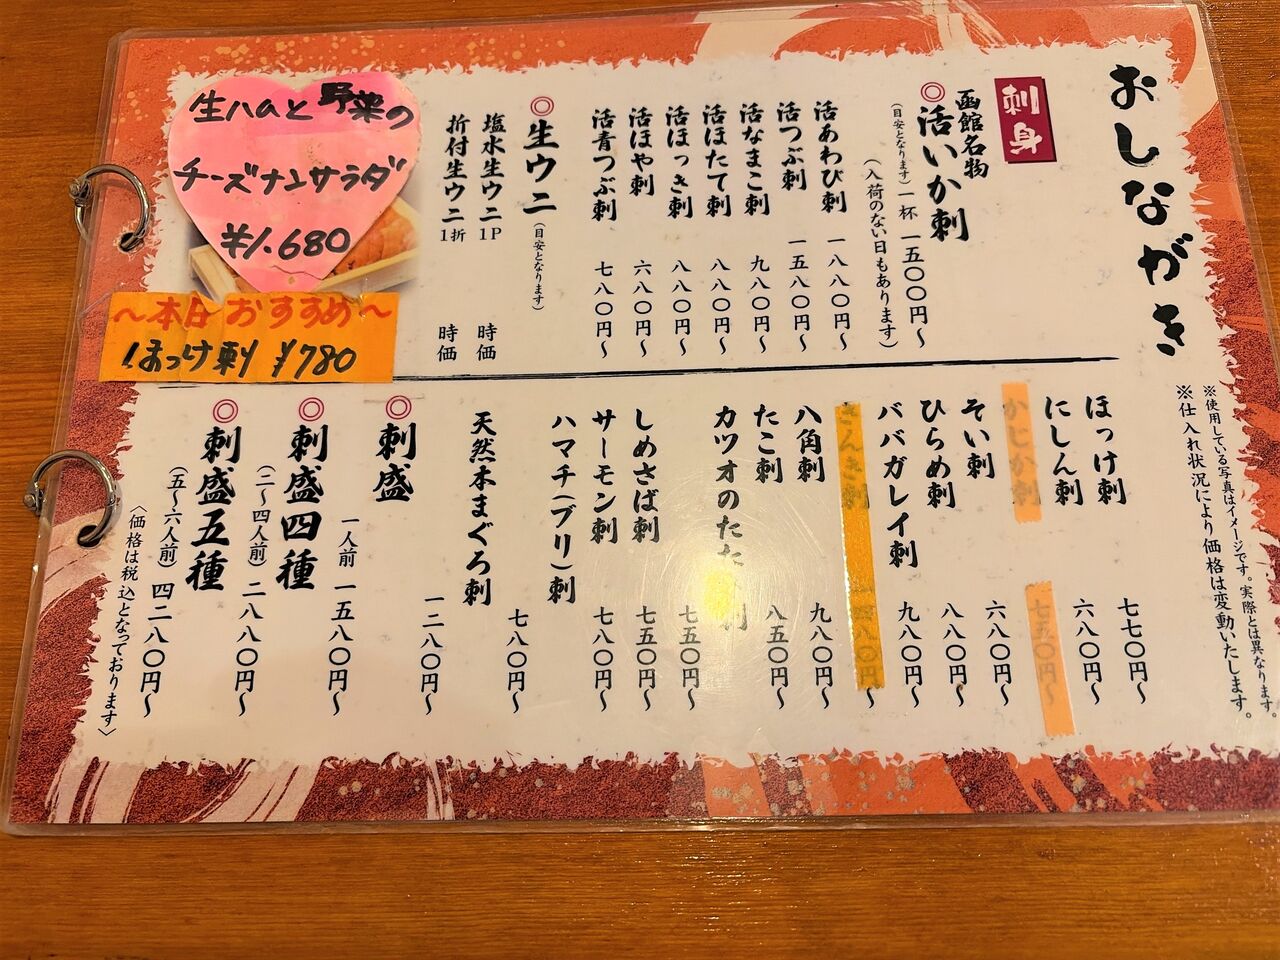 おしながき
※使用している写真はイメージです。実際とは異なります。
※仕入れ状況により価格は変動いたします。
刺身
函館名物
◎活いか刺
(目安となります)一杯 一五〇〇円〜
(入荷のない日もあります)
活あわび刺 一八八〇円〜
活つぶ刺 一五八〇円〜
活なまこ刺 九八〇円〜
活ほたて刺 八八〇円〜
活ほっき刺 八八〇円〜
活ほや刺 六八〇円〜
活青つぶ刺 七八〇円〜
◎生ウニ(目安となります)
塩水生ウニ1P 時価
折付生ウニ1折 時価
生ハムと野菜の
チーズナンサラダ
¥1.680
〜本日おすすめ〜
ほっけ刺 ¥780
ほっけ刺 七七〇円〜
にしん刺 六八〇円〜
かじか刺 七五〇円〜
そい刺 六八〇円〜
ひらめ刺 八八〇円〜
ババガレイ刺 九八〇円〜
きんき刺 八〇円〜
八角刺 九八〇円〜
たこ刺 八五〇円〜
カツオのたた 刺 七五〇円〜
しめさば刺 七五〇円〜
サーモン刺 七八〇円〜
ハマチ(ブリ)刺 七八〇円〜
天然本まぐろ刺 一二八〇円〜
◎刺盛 一人前 一五八〇円〜
◎刺盛四種
(二〜四人前) 二八八〇円〜
◎刺盛五種
(五〜六人前) 四二八〇円〜
〈価格は税込となっております〉